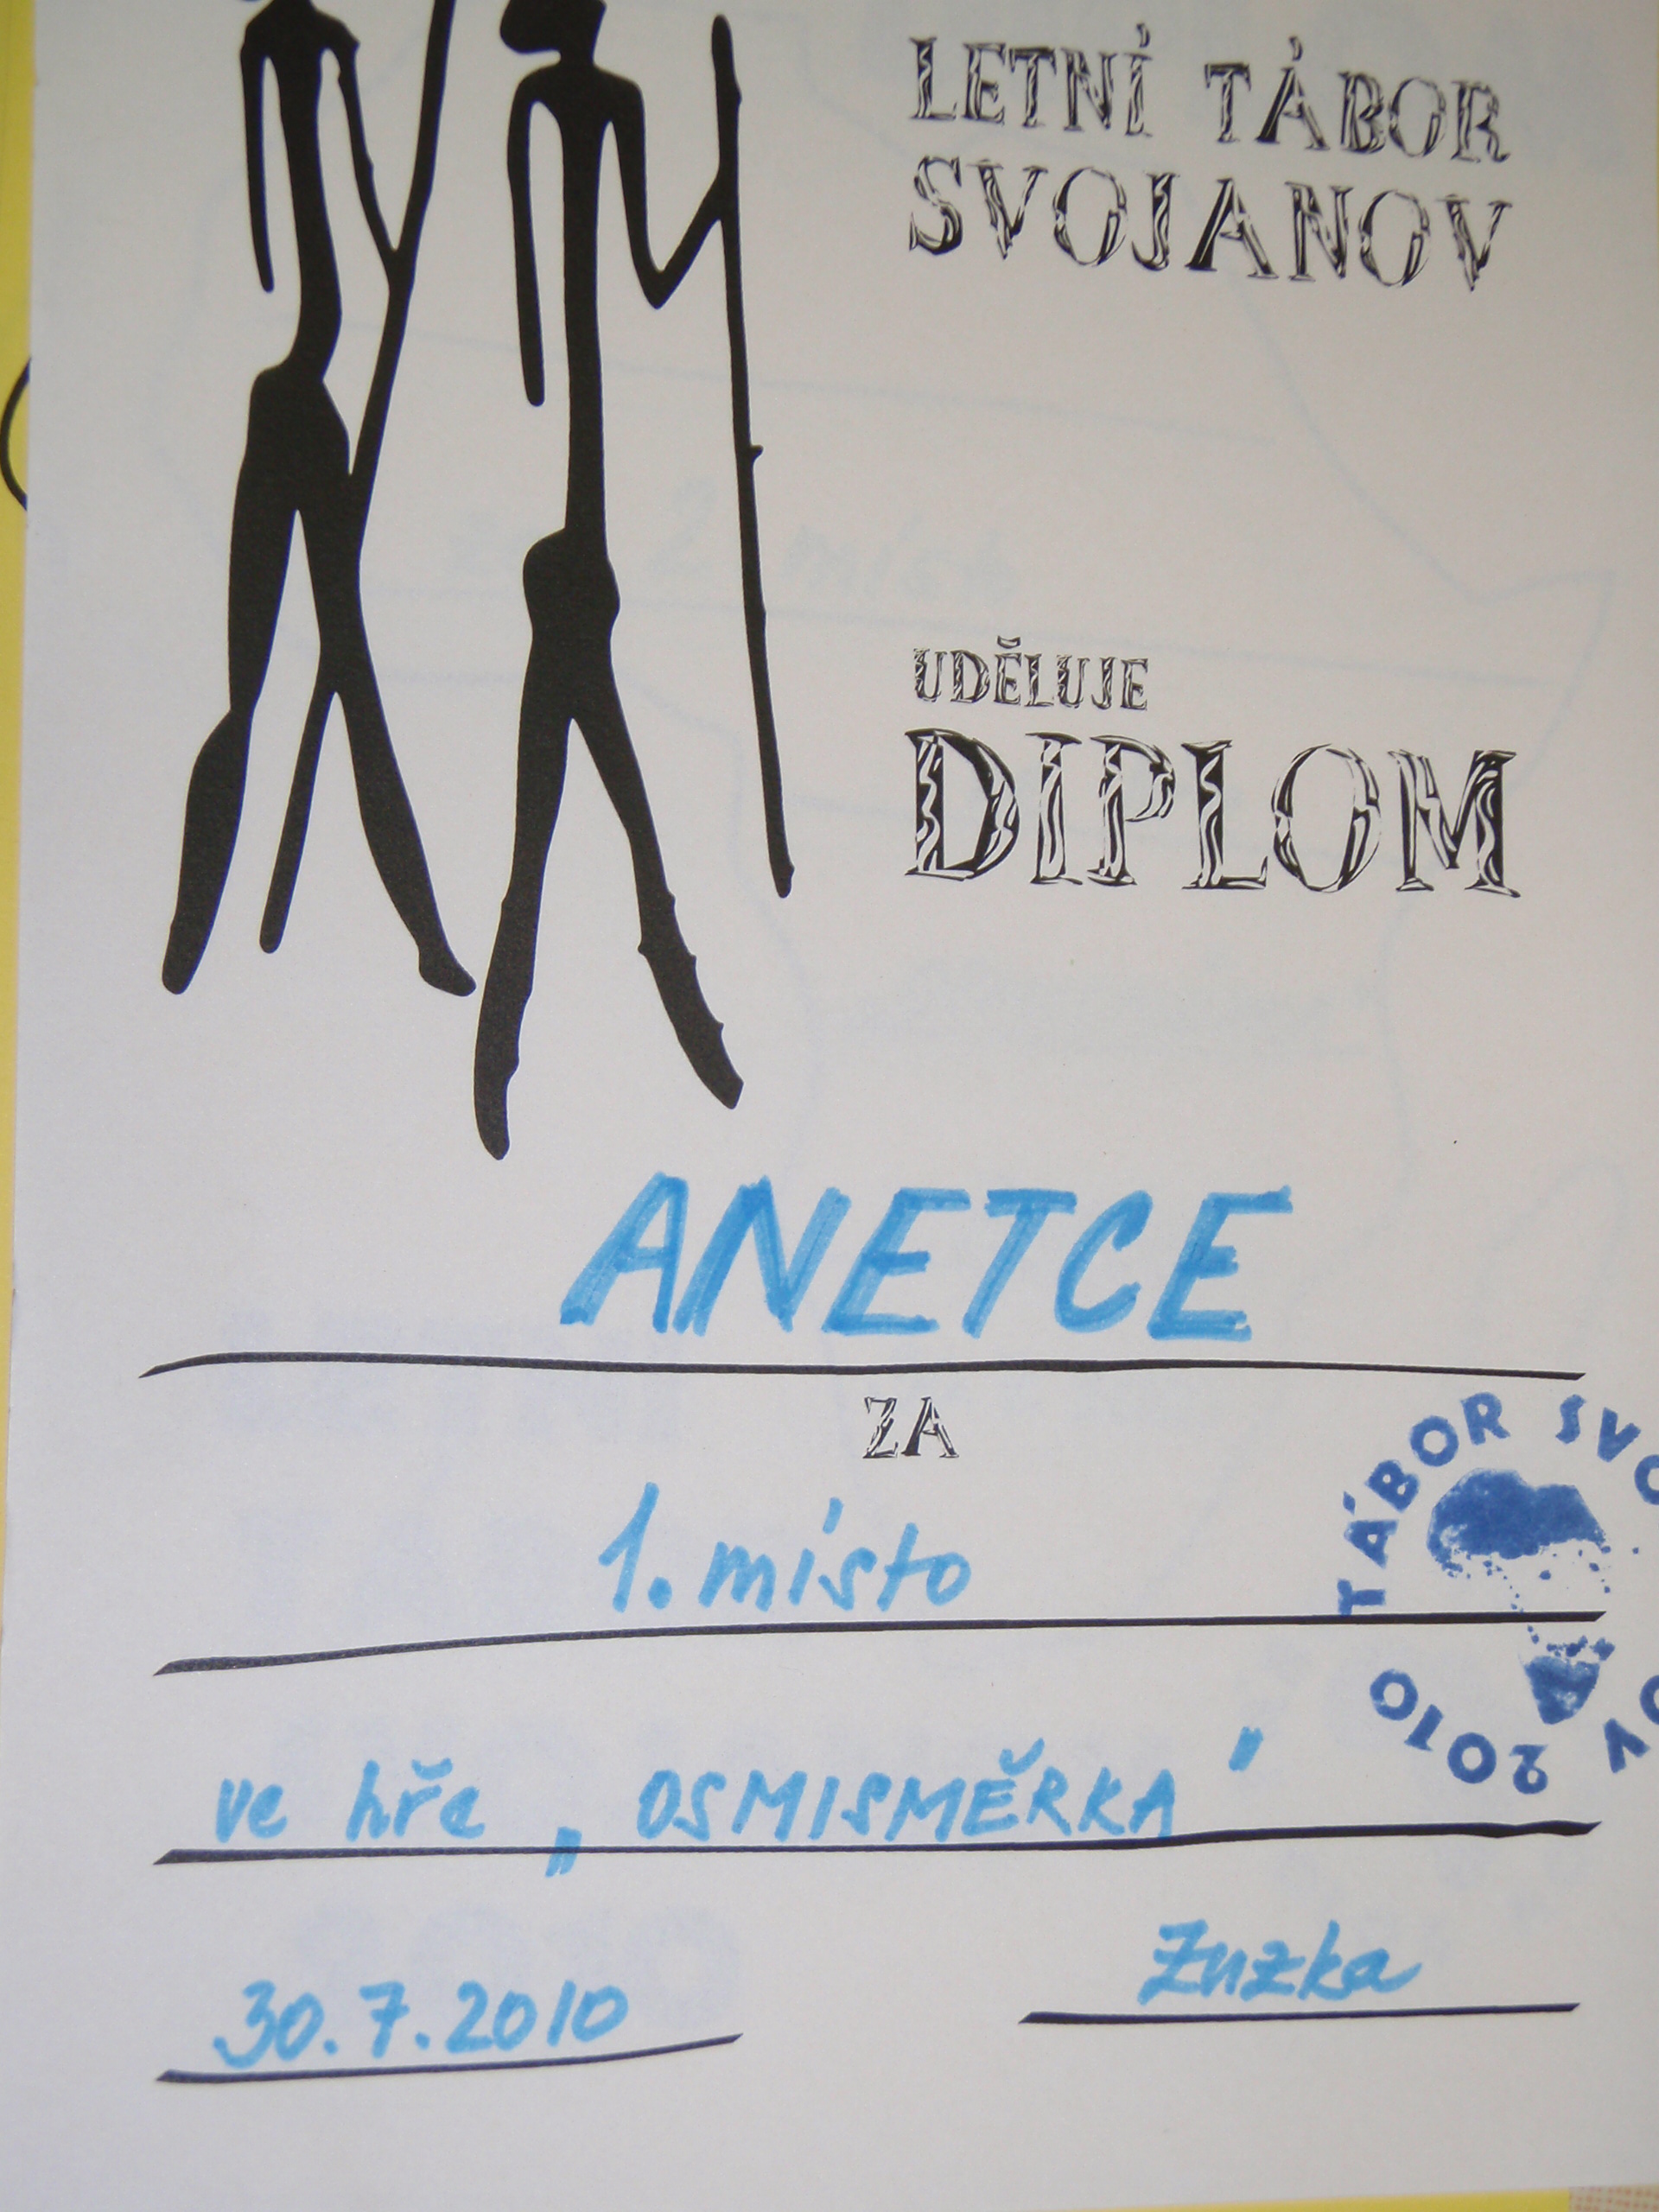 LETNÍ TÁBOR
SVOJANOV
UDĚLUJE
DIPLOM
ANETCE
ZA
1. místo
ve hře „OSMISMĚRKA"
30.7.2010
Zuzka
TÁBOR SVO
OV 2010